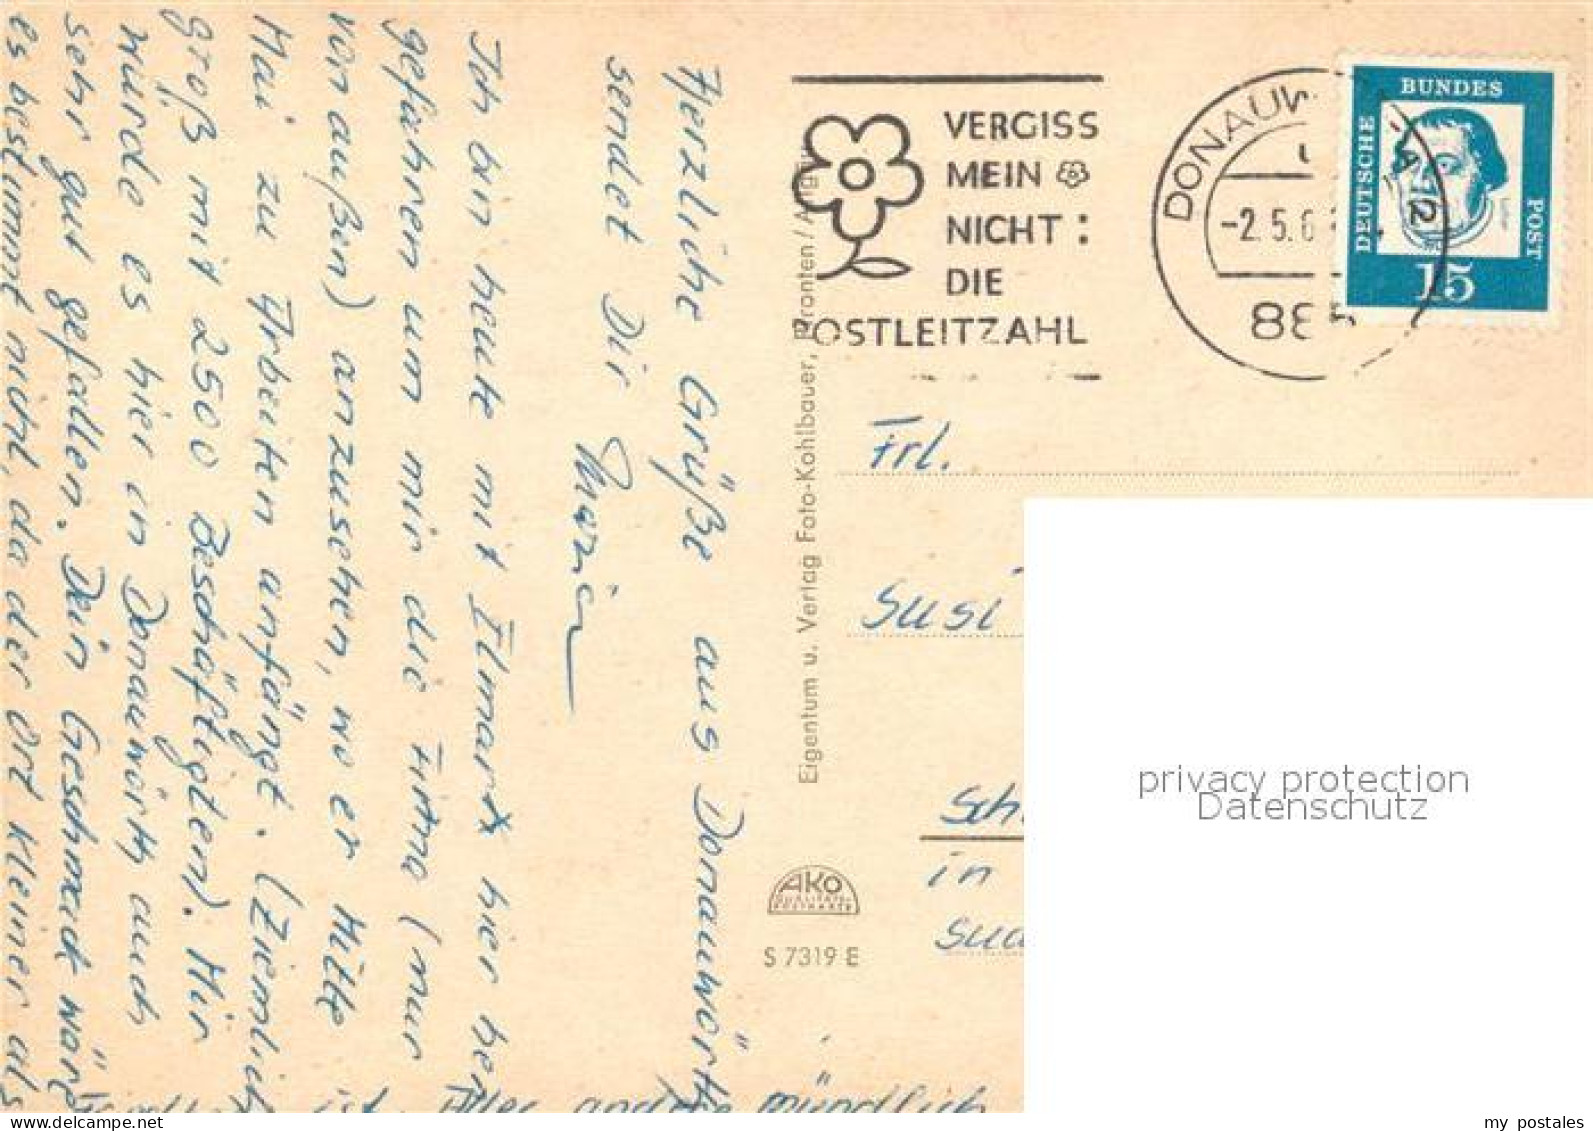 Herzliche Grüße aus Donauwörth
sendet Dir
Ich bin heute mit Elmar hier her
gefahren um mir die Firma (nur
von außen) anzusehen, wo er Mitte
Mai zu Arbeiten anfängt. (Ziemlich
groß mit 2500 Beschäftigten). Mir
würde es hier in Donauwörth auch
sehr gut gefallen. Dein Geschmack wäre
es bestimmt nicht, da der Ort kleiner als
ist. Alles andre mündlich
Eigentum u. Verlag Foto-Kohlbauer, Pfronten/Allgäu
AKO
QUALITÄTS-
POSTKARTE
S 7319 E
VERGISS
MEIN
NICHT:
DIE
POSTLEITZAHL
DONAUW
-2.5.6
-12
885
DEUTSCHE
BUNDES
POST
15
Frl.
Susi
Sch
in
privacy protection
Datenschutz
my postales
www.delcampe.net